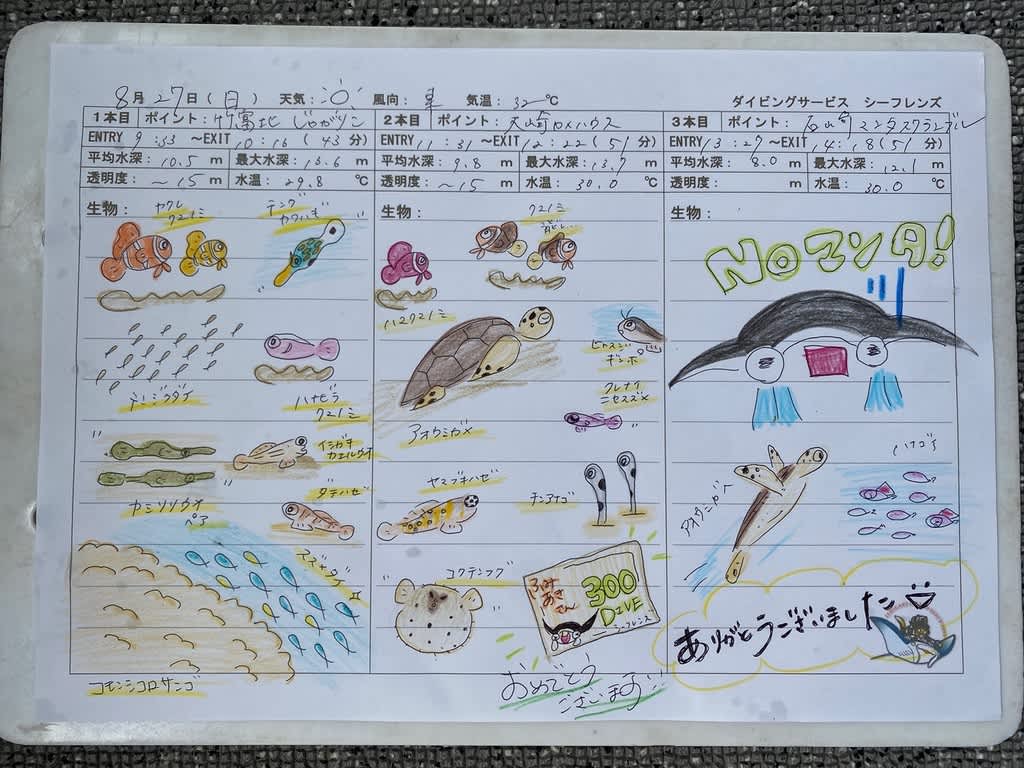 8月27日(日) 天気: 風向: 気温:32℃
ダイビングサービス シーフレンズ
1本目 ポイント:竹富北 じゃがりこ
ENTRY 9:33 ～EXIT 10:16 (43分)
平均水深:10.5m 最大水深:13.6m
透明度:～15m 水温:29.8℃
生物:
ヤクレ
クマノミ
テングカワハギ
デバスズメダイ
ハナビラ
クマノミ
イシガキ
カエルウオ
カミソリウオ
ペア
ダテハゼ
スズメダイ
コモンシコロサンゴ
2本目 ポイント:大崎カメハウス
ENTRY 11:31 ～EXIT 12:22 (51分)
平均水深:9.8m 最大水深:13.7m
透明度:～15m 水温:30.0℃
生物:
クマノミ
ハマクマノミ
アオウミガメ
ヒトスジ
ギンポ
クレナイ
ニセスズメ
ヤマブキハゼ
チンアナゴ
コクテンフグ
さん
300
DIVE
シーフレンズ
おめでとう
ございます!!
3本目 ポイント:石崎 マンタスクランブル
ENTRY 13:27 ～EXIT 14:18 (51分)
平均水深:8.0m 最大水深:12.1m
透明度: m 水温:30.0℃
生物:
NOマンタ!
アオウミガメ
ハナゴイ
ありがとうございました